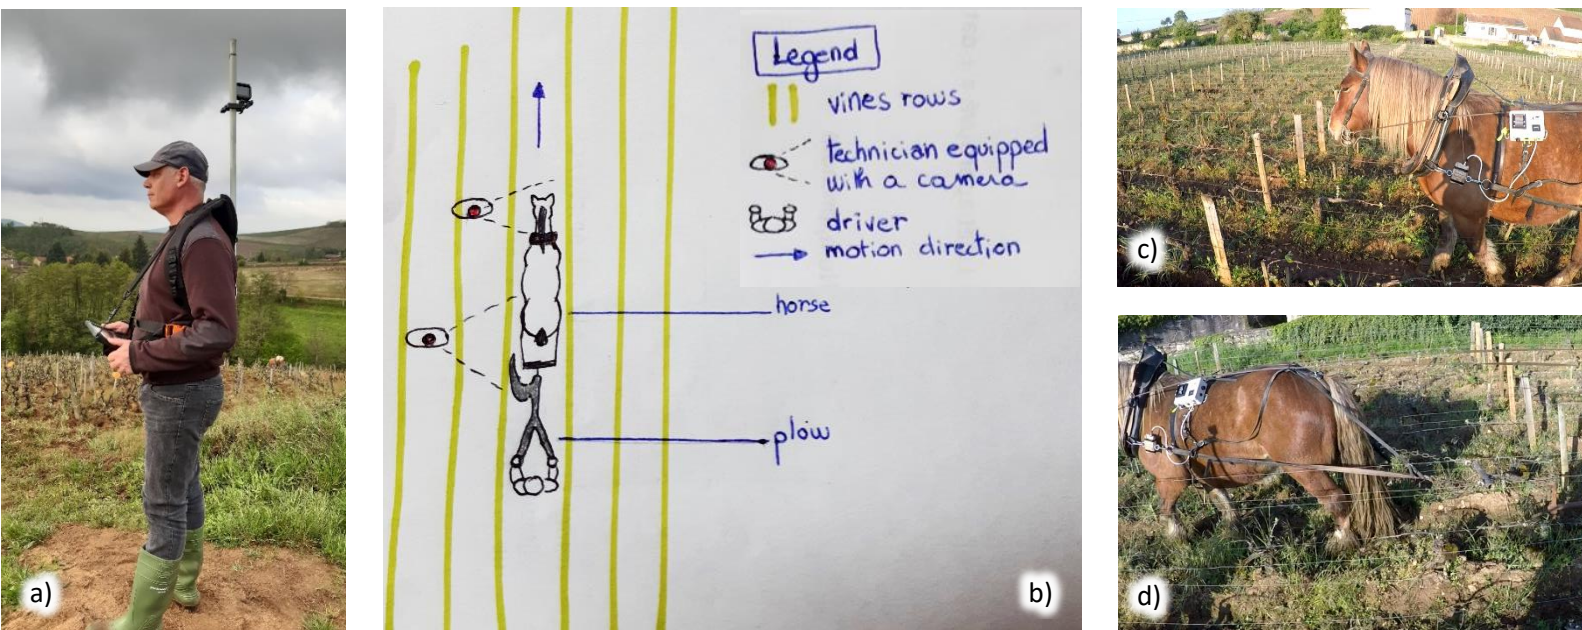 a)
b)
Legend
vines rows
technician equipped
with a camera
driver
motion direction
horse
plow
c)
d)